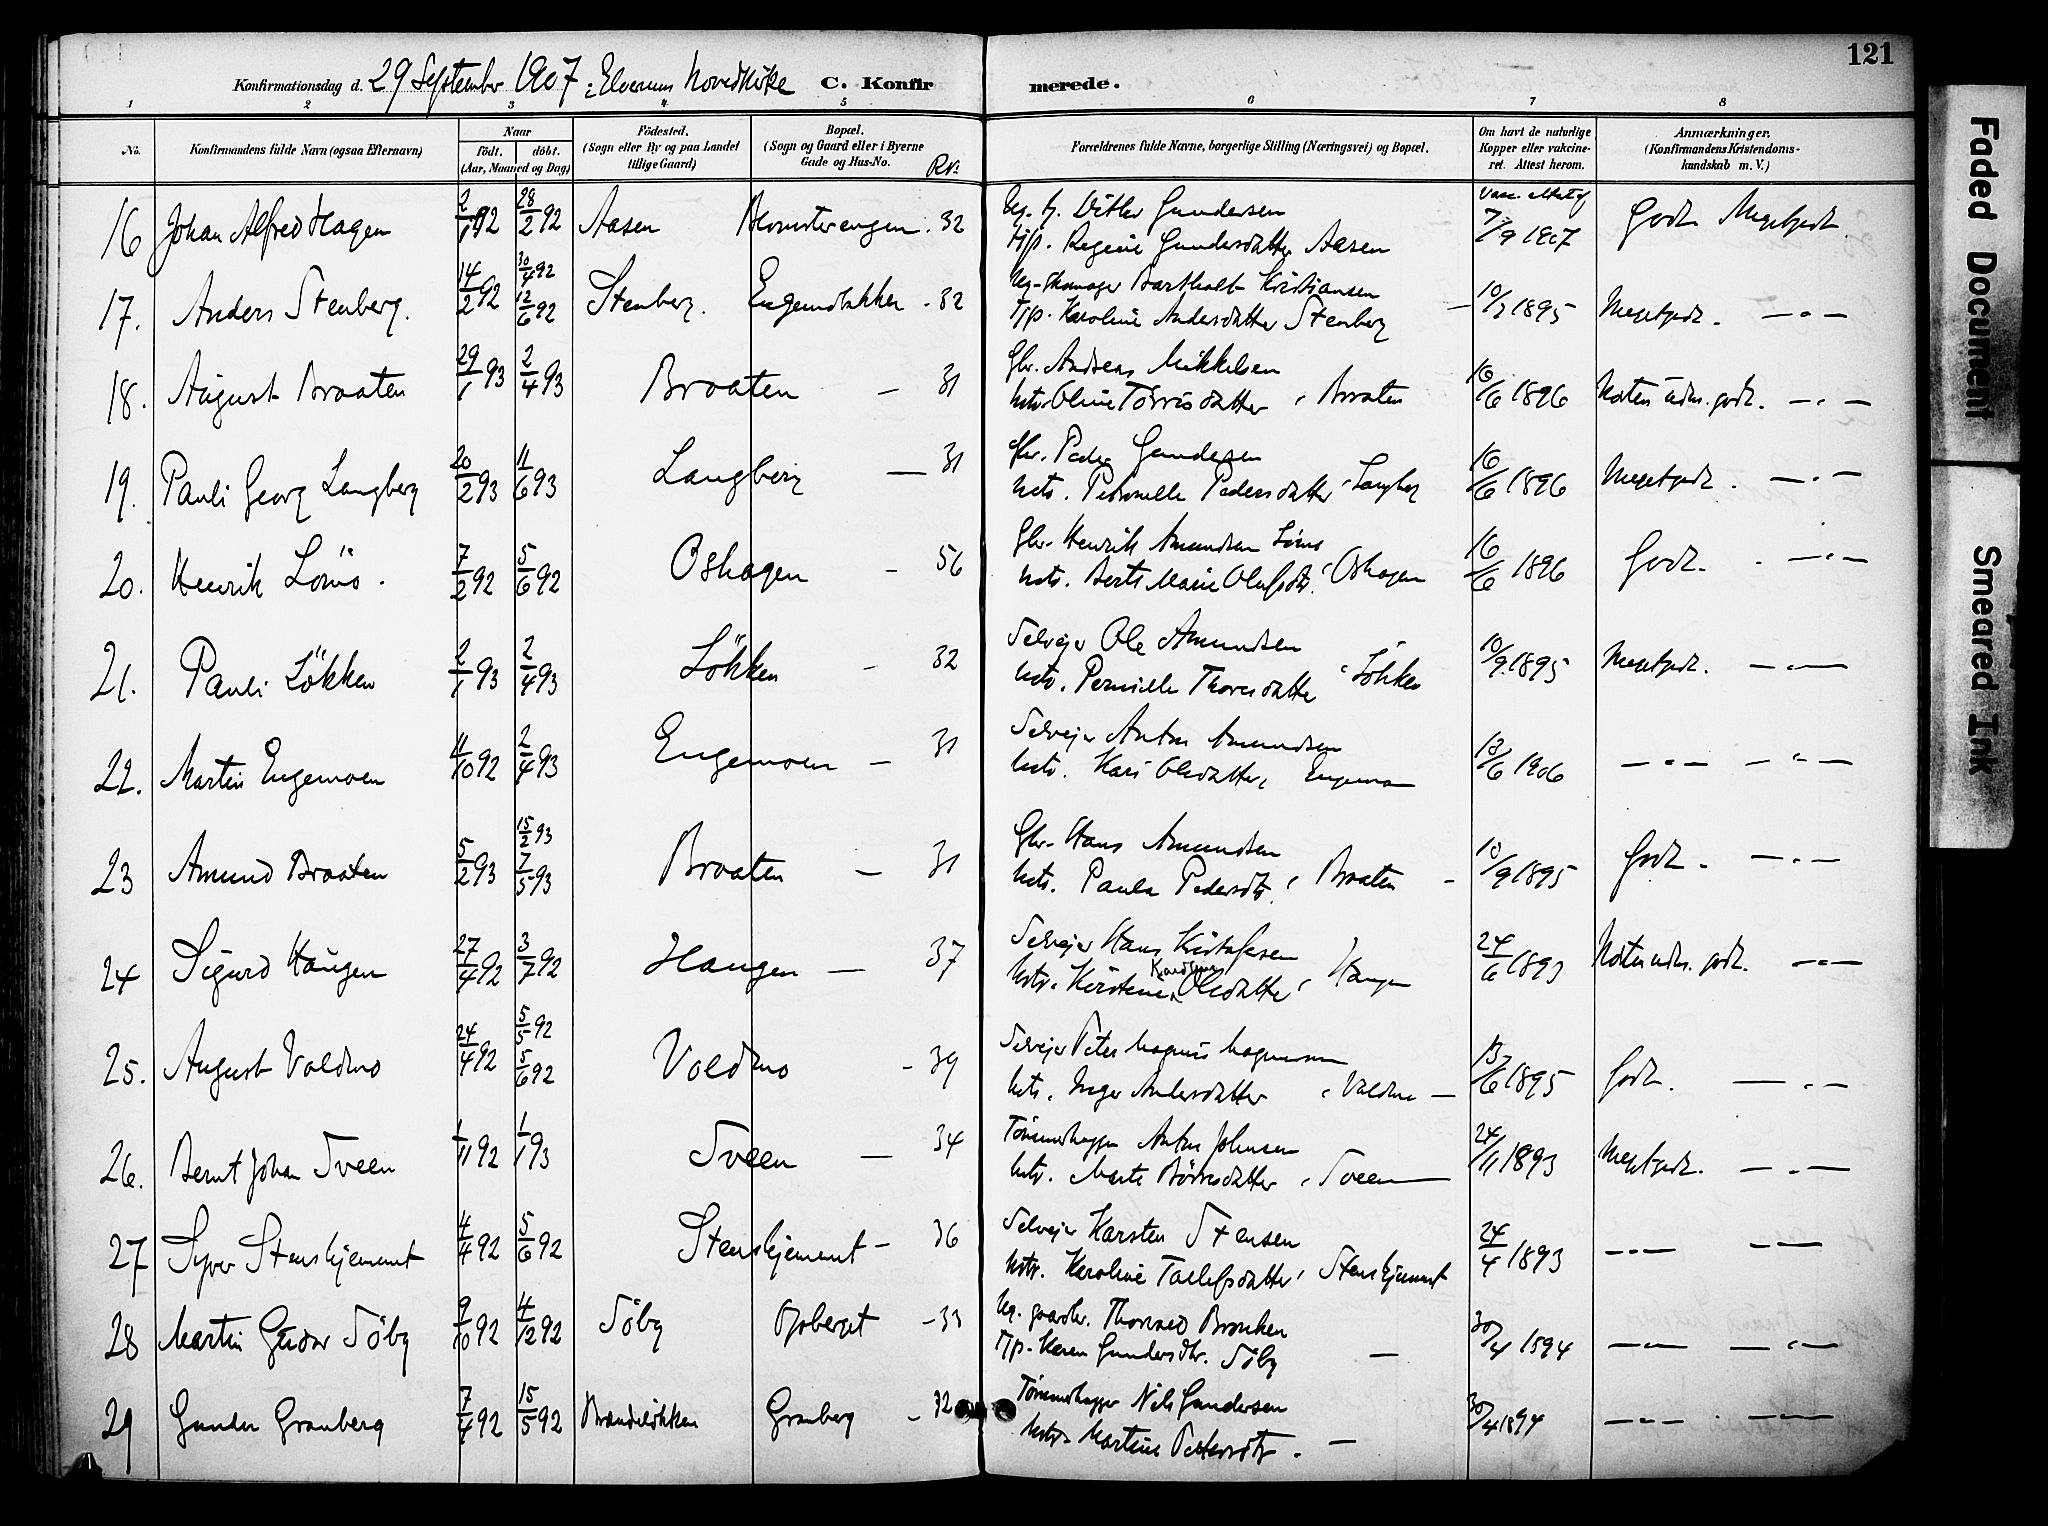 121
Konfirmationsdag d. 29 September 1907 i Elverum Hovedkirke C. Konfirmerede.
1 2 3 4 5 6 7 8
No. Konfirmandens fulde Navn (ogsaa Efternavn) Naar født. døbt. (Aar, Maaned og Dag) Fødested. (Sogn eller By og paa Landet tillige Gaard) Bopæl. (Sogn og Gaard eller i Byerne Gade og Hus-No. Forældrenes fulde Navne, borgerlige Stilling (Næringsvei) og Bopæl. Om havt de naturlige Kopper eller vakcineret. Attest herom. Anmærkninger. (Konfirmandens Kristendomskundskab m. V.)
16 Johan Alfred Hagen 2/1 92 28/2 92 Aasen 32 Ditlev Gundersen
Regine Gundersdatter Aasen 7/9 1907 Godt Megetgodt
17. Anders Stenberg. 14/2 92 30/4 92 12/6 92 Stenberg. Engemobakken - 32 Bartholt Kristiansen
Karoline Andersdatter Stenberg 1895 Megetgodt. — " —
18. August Braaten 29/1 93 2/4 93 Braaten — 31 Gbr. Andreas Mikkelsen
Hstr. Oline Torrisdatter, Braaten 16/6 1896 godt. — " —
19. Pauli Georg Langberg 20/2 93 11/6 93 Langberg — 31 Gbr. Peder Gundersen
Hstr. Petronelle Pedersdatter, Langberg 16/6 1896 Megetgodt. — " —
20. Henrik Lömo. 7/2 92 5/6 92 Oshagen - 56 Gbr. Henrik Amundsen Lömo
Hstr. Berte Marie Olufsdtr., Oshagen 16/6 1896 Godt. — " —
21. Pauli Lökken 2/1 93 2/4 93 Lökken - 32 Selveier Ole Amundsen
Hstr. Pernille Thoresdatter, Lökken 10/9 1895 Megetgodt. — " —
22. Martin Engemoen 11/10 92 2/4 93 Engemoen — 31 Selveier Anton Amundsen
Hstr. Kari Olsdatter, Engemoen 13/6 1906 — " — — " —
23 Amund Braaten 5/2 93 15/2 93 7/5 93 Braaten — 31 Gbr. Hans Amundsen
Hstr. Paula Pedersdtr., Braaten - 10/9 1895 Godt. — " —
24 Sigurd Haugen 27/4 92 3/7 92 Haugen — 37 Selveier Hans Kristofersen
Hstr. Olsdatter, Haugen 24/6 1893 godt. — " —
25. August Voldmo 24/4 92 5/5 92 5/6 92 Voldmo - 39 Selveier Peter Magnus Magnusson
Hstr. Inger Andersdatter, Voldmo — 13/6 1895 Godt. — " —
26. Bernt Johan Sveen 1/11 92 1/1 93 Sveen — 34 Tömmerhugger Anton Johnsen
Hstr. Marte Börresdatter, Sveen 24/11 1893 Megetgodt. — " —
27 Syver Stenskjemmet 4/4 92 5/6 92 Stenskjemmet - 36 Selveier Karsten Stensen
Hstr. Karoline Tollefsdatter, Stenskjemmet 24/4 1893 — " — — " —
28 Martin Gudar Söby 9/10 92 4/12 92 Söby Opberget - 33 Ug. gaardbr. Thorvald Bronken
Pip. Karen Gundersdtr. Söby — 30/4 1894 — " — — " —
29 Gunder Granberg 7/4 92 15/5 92 Brændelökken Granberg - 32 Tömmerhugger Nils Gundersen
Hstr. Martine Pettersdtr. — 30/4 1894 — " — — " —
Faded Document
Smeared Ink